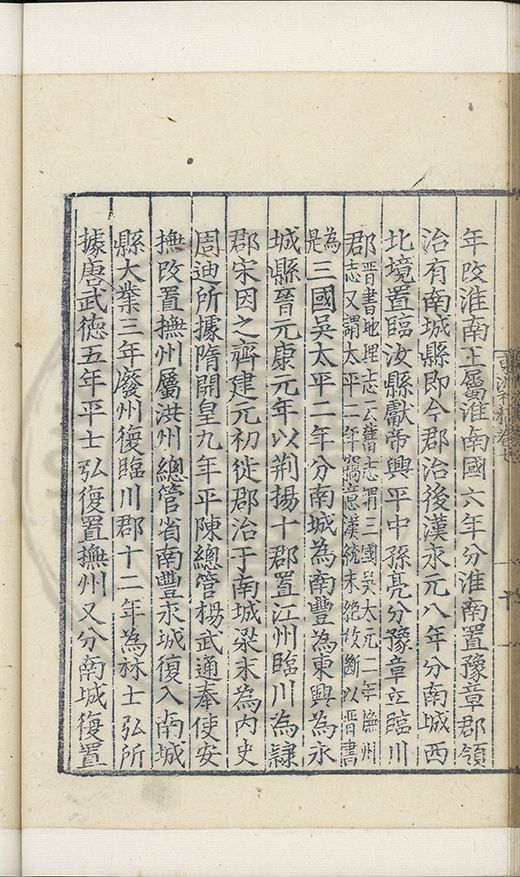 年改淮南王屬淮南國六年分淮南置豫章郡領
治有南城縣即今郡治後漢永元八年分南城西
北境置臨汝縣獻帝興平中孫亮分豫章立臨川
郡晉書地理志云舊志謂三國吳太元二年撫州
志又謂太平二年竊意漢統未絕故斷以晉書
為是三國吳太平二年分南城為南豐為東興為永
城縣晉元康元年以荆揚十郡置江州臨川為隷
郡宋因之齊建元初徙郡治于南城梁末為內史
周迪所據隋開皇九年平陳總管楊武通奉使安
撫改置撫州屬洪州總管省南豐永城復入南城
縣大業三年廢州復臨川郡十二年為林士弘所
據唐武德五年平士弘復置撫州又分南城復置